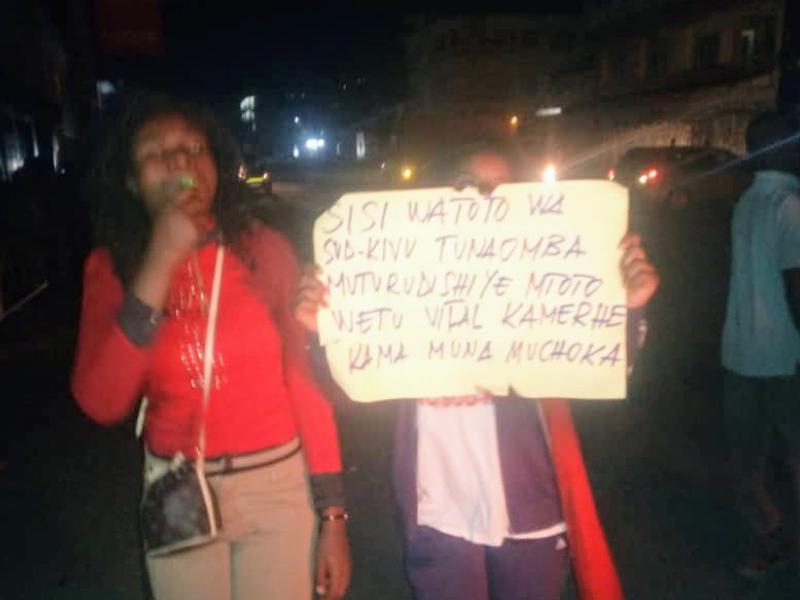 SISI WATOTO WA
SUD-KIVU TUNAOMBA
MUTURUDISHIYE MTOTO
WETU VITAL KAMERHE
KAMA MUNA MUCHOKA